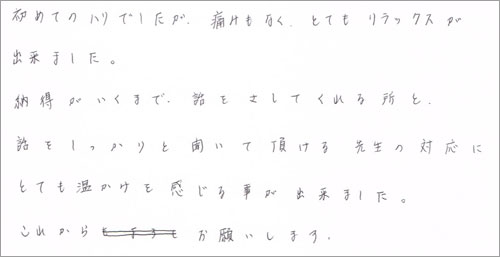 初めてのハリでしたが、痛けもなく、とてもリラックスが
出来ました。
納得がいくまで、話をさしてくれる所と、
話をしっかりと聞いて頂ける先生の対応に
とても温かけを感じる事が出来ました。
これから お願いします。